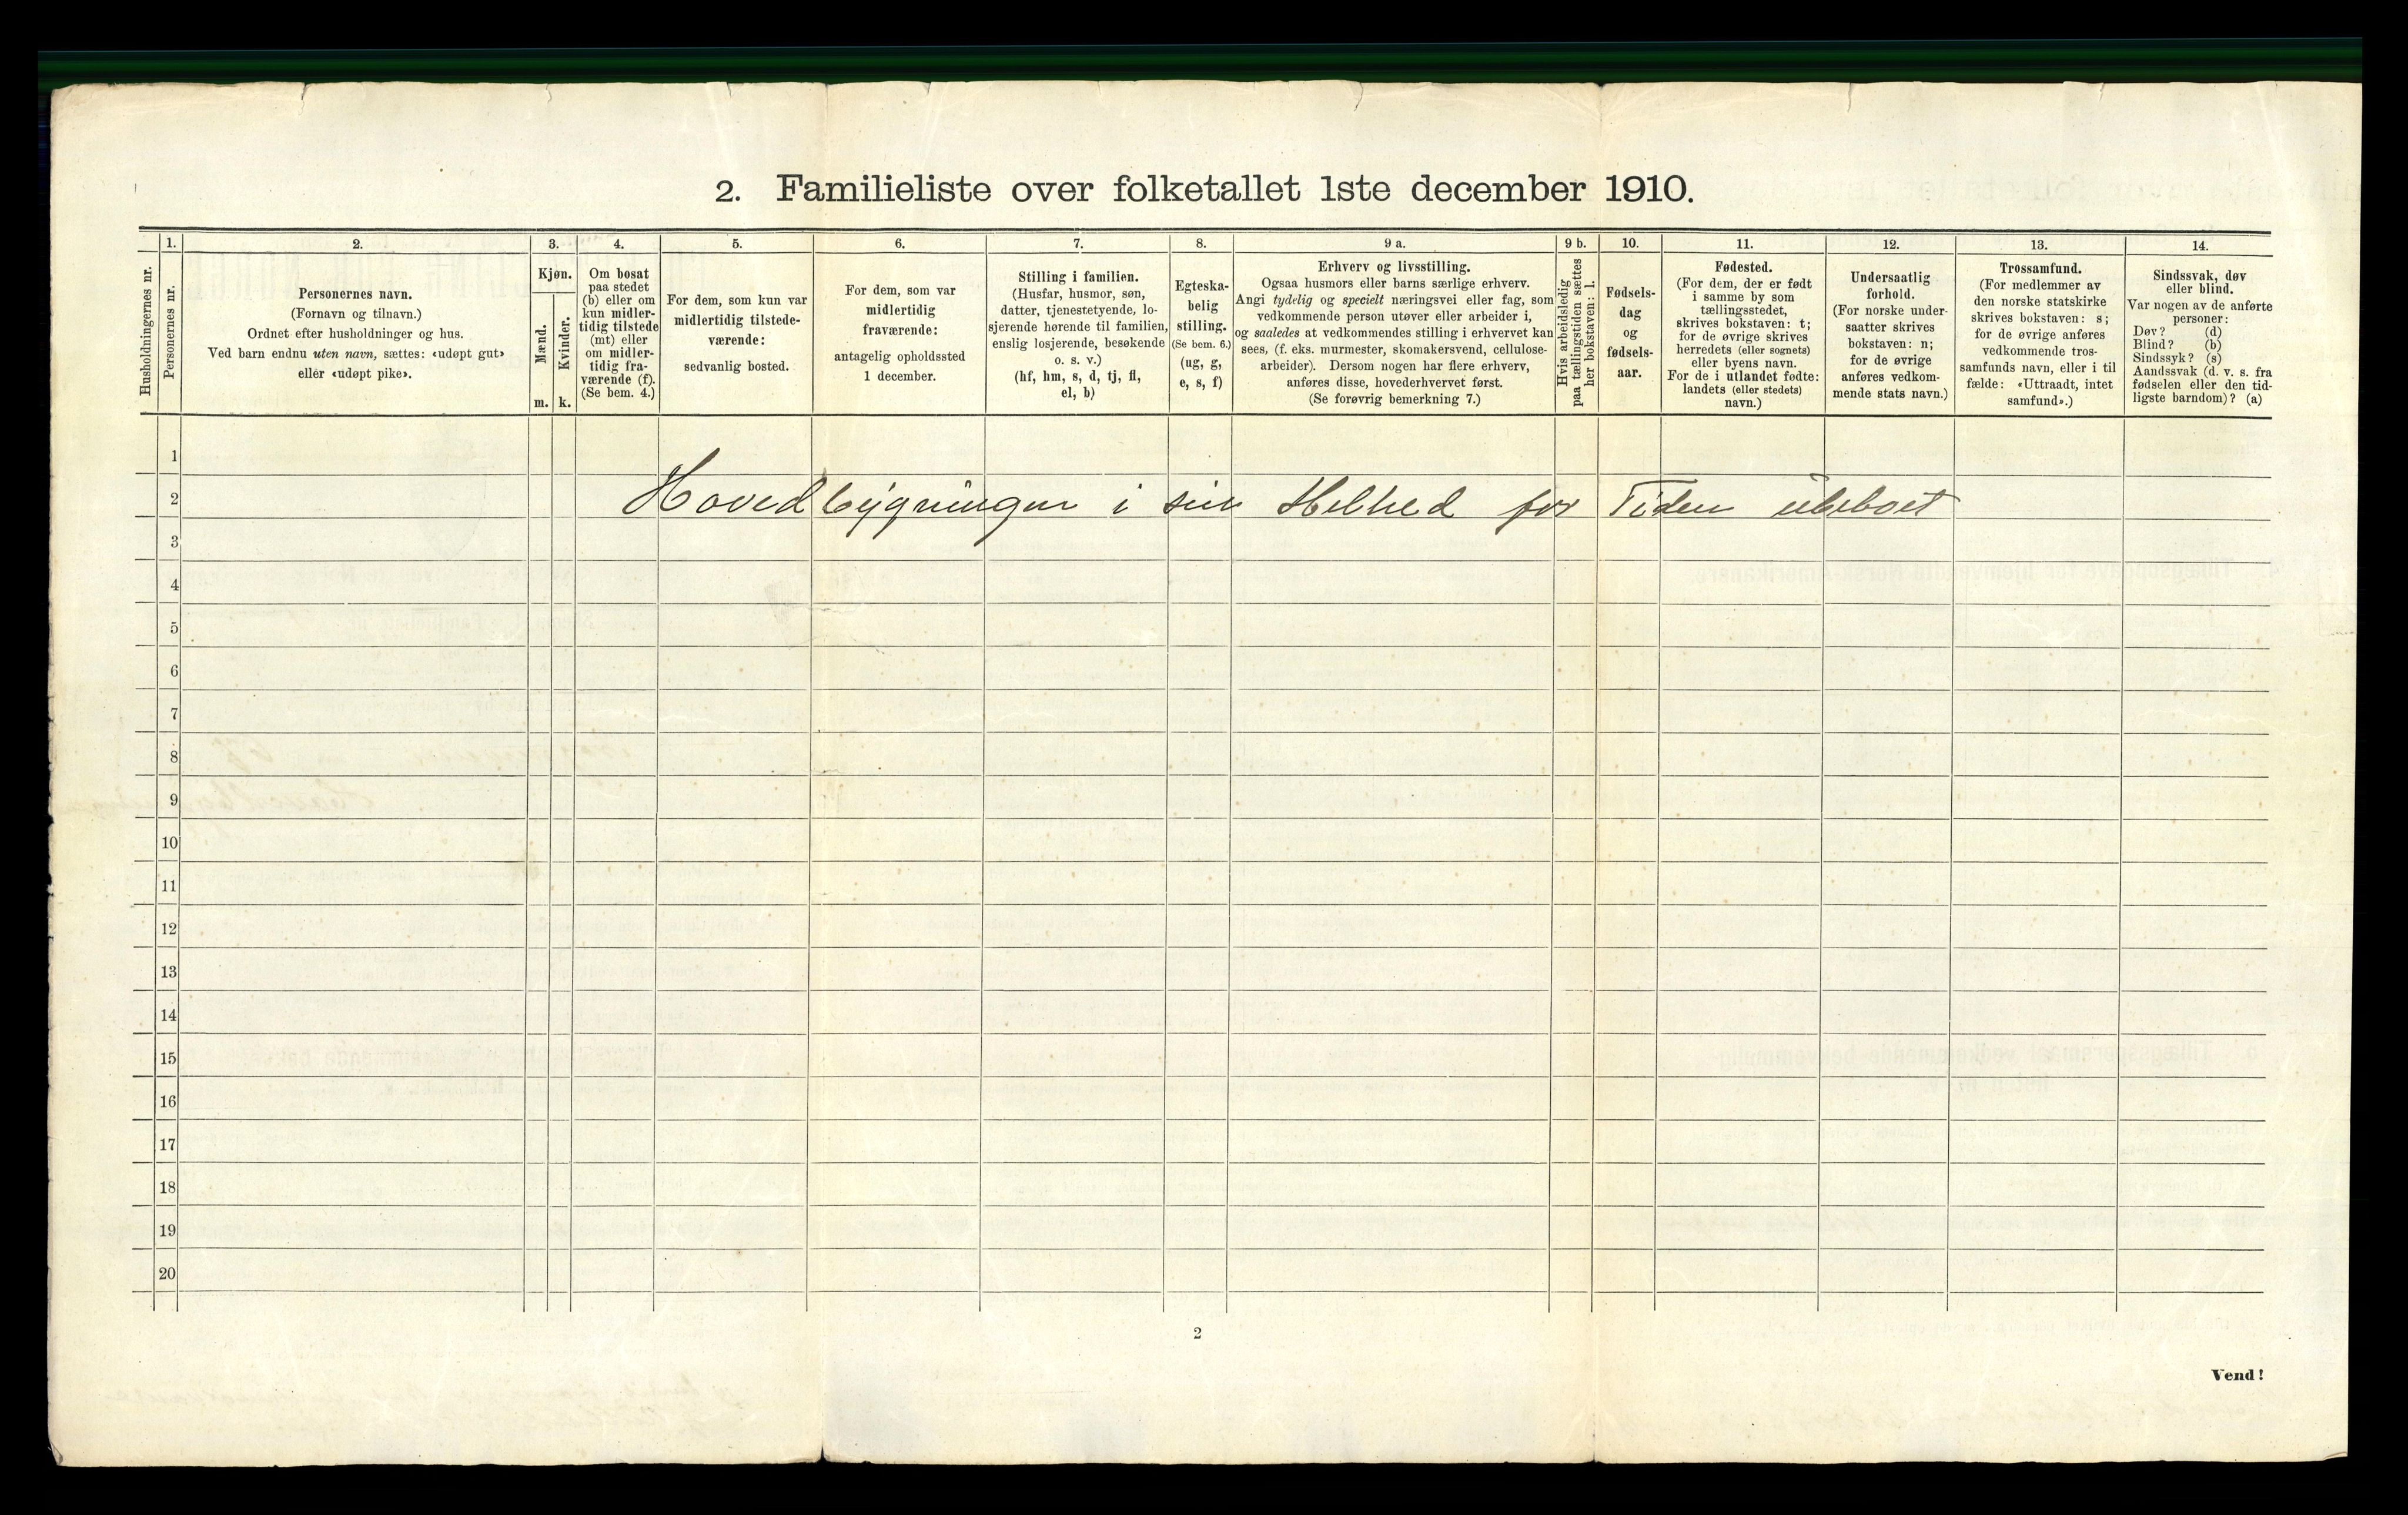 2. Familieliste over folketallet 1ste december 1910.
1. 2. 3. 4. 5. 6. 7. 8. 9 a. 9 b. 10. 11. 12. 13. 14.
Husholdningernes nr.
Personernes nr.
Personernes navn.
(Fornavn og tilnavn.)
Ordnet efter husholdninger og hus.
Ved barn endnu uten navn, sættes: «udøpt gut»
eller «udøpt pike».
Kjøn.
Mænd.
Kvinder.
m. k.
Om bosat
paa stedet
(b) eller om
kun midler-
tidig tilstede
(mt) eller
om midler-
tidig fra-
værende (f).
(Se bem. 4.)
For dem, som kun var
midlertidig tilstede-
værende:
sedvanlig bosted.
For dem, som var
midlertidig
fraværende:
antagelig opholdssted
1 december.
Stilling i familien.
(Husfar, husmor, søn,
datter, tjenestetyende, lo-
sjerende hørende til familien,
enslig losjerende, besøkende
o. s. v.)
(hf, hm, s, d, tj, fl,
el, b)
Egteska-
belig
stilling.
(Se bem. 6.)
(ug, g,
e, s, f)
Erhverv og livsstilling.
Ogsaa husmors eller barns særlige erhverv.
Angi tydelig og specielt næringsvei eller fag, som
vedkommende person utøver eller arbeider i,
og saaledes at vedkommendes stilling i erhvervet kan
sees, (f. eks. murmester, skomakersvend, cellulose-
arbeider). Dersom nogen har flere erhverv,
anføres disse, hovederhvervet først.
(Se forøvrig bemerkning 7.)
Hvis arbeidsledig
paa tællingstiden sættes
her bokstaven: l.
Fødsels-
dag
og
fødsels-
aar.
Fødested.
(For dem, der er født
i samme by som
tællingsstedet,
skrives bokstaven: t;
for de øvrige skrives
herredets (eller sognets)
eller byens navn.
For de i utlandet fødte:
landets (eller stedets)
navn.)
Undersaatlig
forhold.
(For norske under-
saatter skrives
bokstaven: n;
for de øvrige
anføres vedkom-
mende stats navn.)
Trossamfund.
(For medlemmer av
den norske statskirke
skrives bokstaven: s;
for de øvrige anføres
vedkommende tros-
samfunds navn, eller i til
fælde: «Uttraadt, intet
samfund».)
Sindssvak, døv
eller blind.
Var nogen av de anførte
personer:
Døv? (d)
Blind? (b)
Sindssyk? (s)
Aandssvak (d. v. s. fra
fødselen eller den tid-
ligste barndom)? (a)
1
2 Hovedbygningen i sin Helhed for Tiden ubeboet
3
4
5
6
7
8
9
10
11
12
13
14
15
16
17
18
19
20
2
Vend!